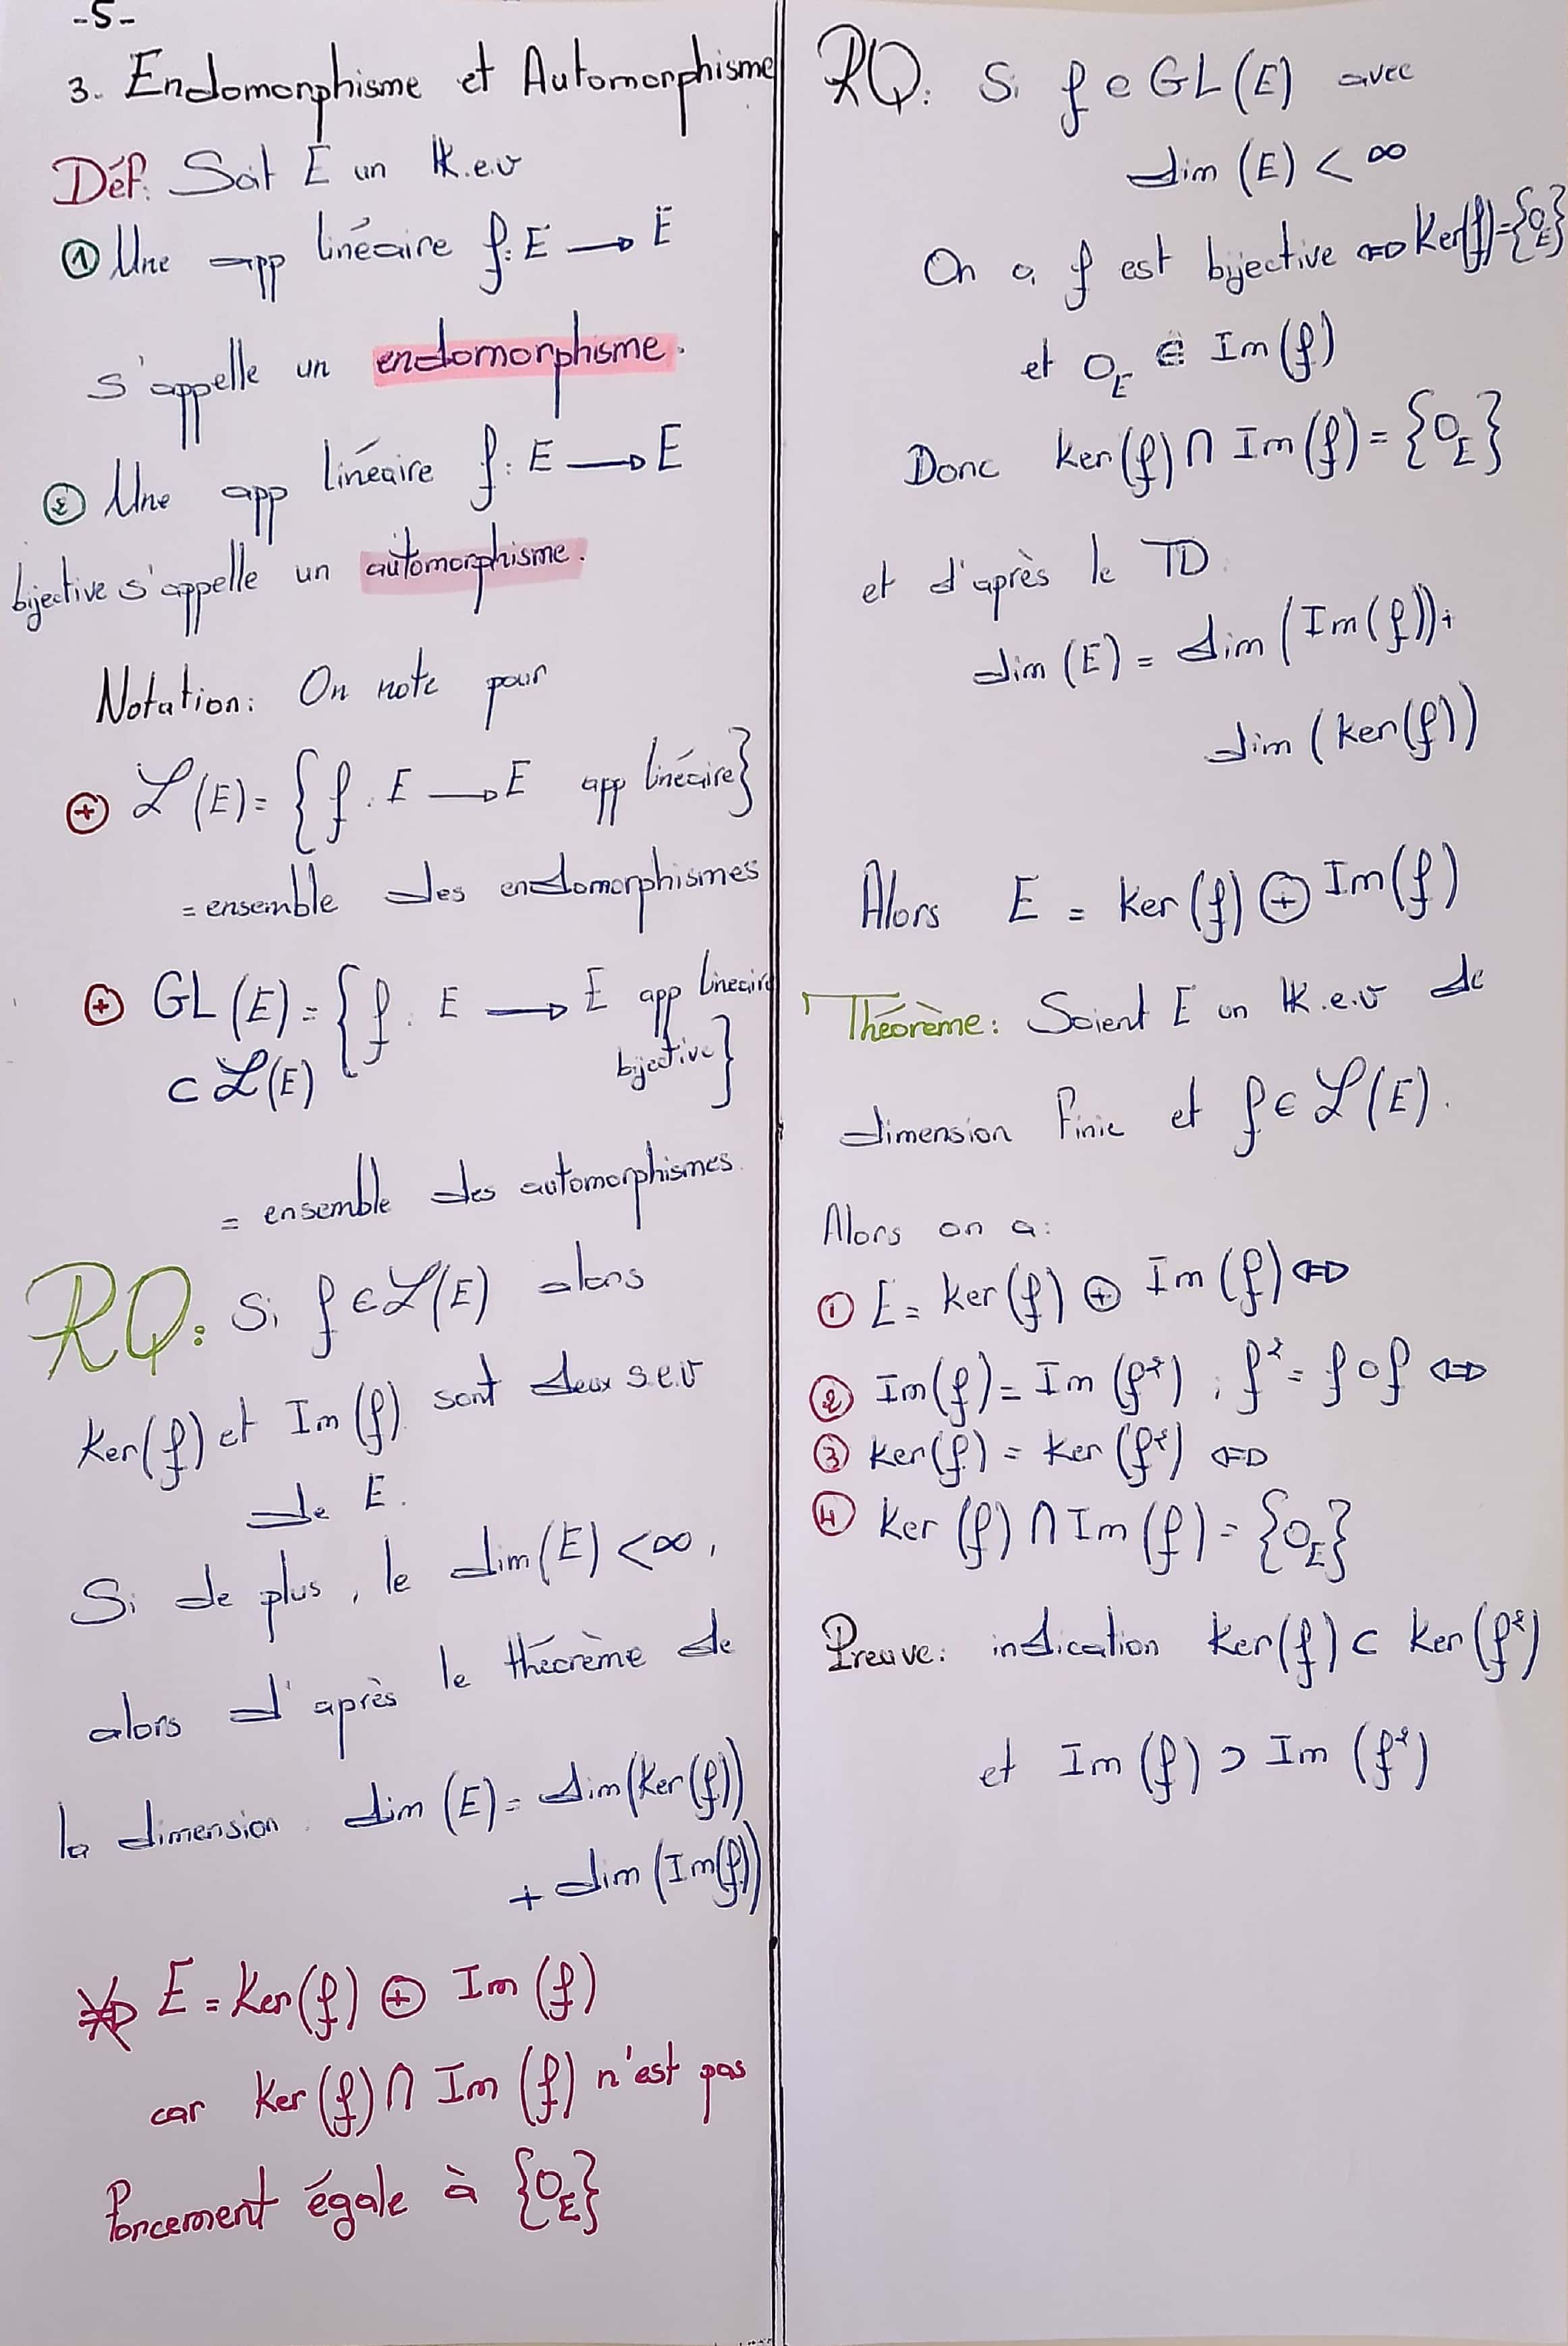 -5-
3. Endomorphisme et Automorphisme
Déf: Soit E un 𝕂.e.v
① Une app linéaire f: E → E
s'appelle un endomorphisme.
② Une app linéaire f: E → E
bijective s'appelle un automorphisme.
Notation: On note pour
⊕ ℒ(E) = {f: E → E app linéaire}
= ensemble des endomorphismes
⊕ GL(E) = {f: E → E app lineaire
⊂ ℒ(E) bijective}
= ensemble des automorphismes.
RQ: Si f ∈ ℒ(E) alors
Ker(f) et Im(f) sont deux s.e.v
de E.
Si de plus, le dim(E) < ∞,
alors d'après le théorème de
la dimension. dim(E) = dim(Ker(f))
+ dim(Im(f))
⇏ E = Ker(f) ⊕ Im(f)
car Ker(f) ∩ Im(f) n'est pas
forcement égale à {0_E}
RQ: Si f ∈ GL(E) avec
dim(E) < ∞
On a f est bijective ⇔ Ker(f) = {0_E}
et 0_E ∈ Im(f)
Donc Ker(f) ∩ Im(f) = {0_E}
et d'après le TD.
dim(E) = dim(Im(f)) +
dim(Ker(f))
Alors E = Ker(f) ⊕ Im(f)
Théorème: Soient E un 𝕂.e.v de
dimension finie et f ∈ ℒ(E).
Alors on a:
① E = Ker(f) ⊕ Im(f) ⇔
② Im(f) = Im(f²) ; f² = f∘f ⇔
③ Ker(f) = Ker(f²) ⇔
④ Ker(f) ∩ Im(f) = {0_E}
Preuve: indication Ker(f) ⊂ Ker(f²)
et Im(f) ⊃ Im(f²)